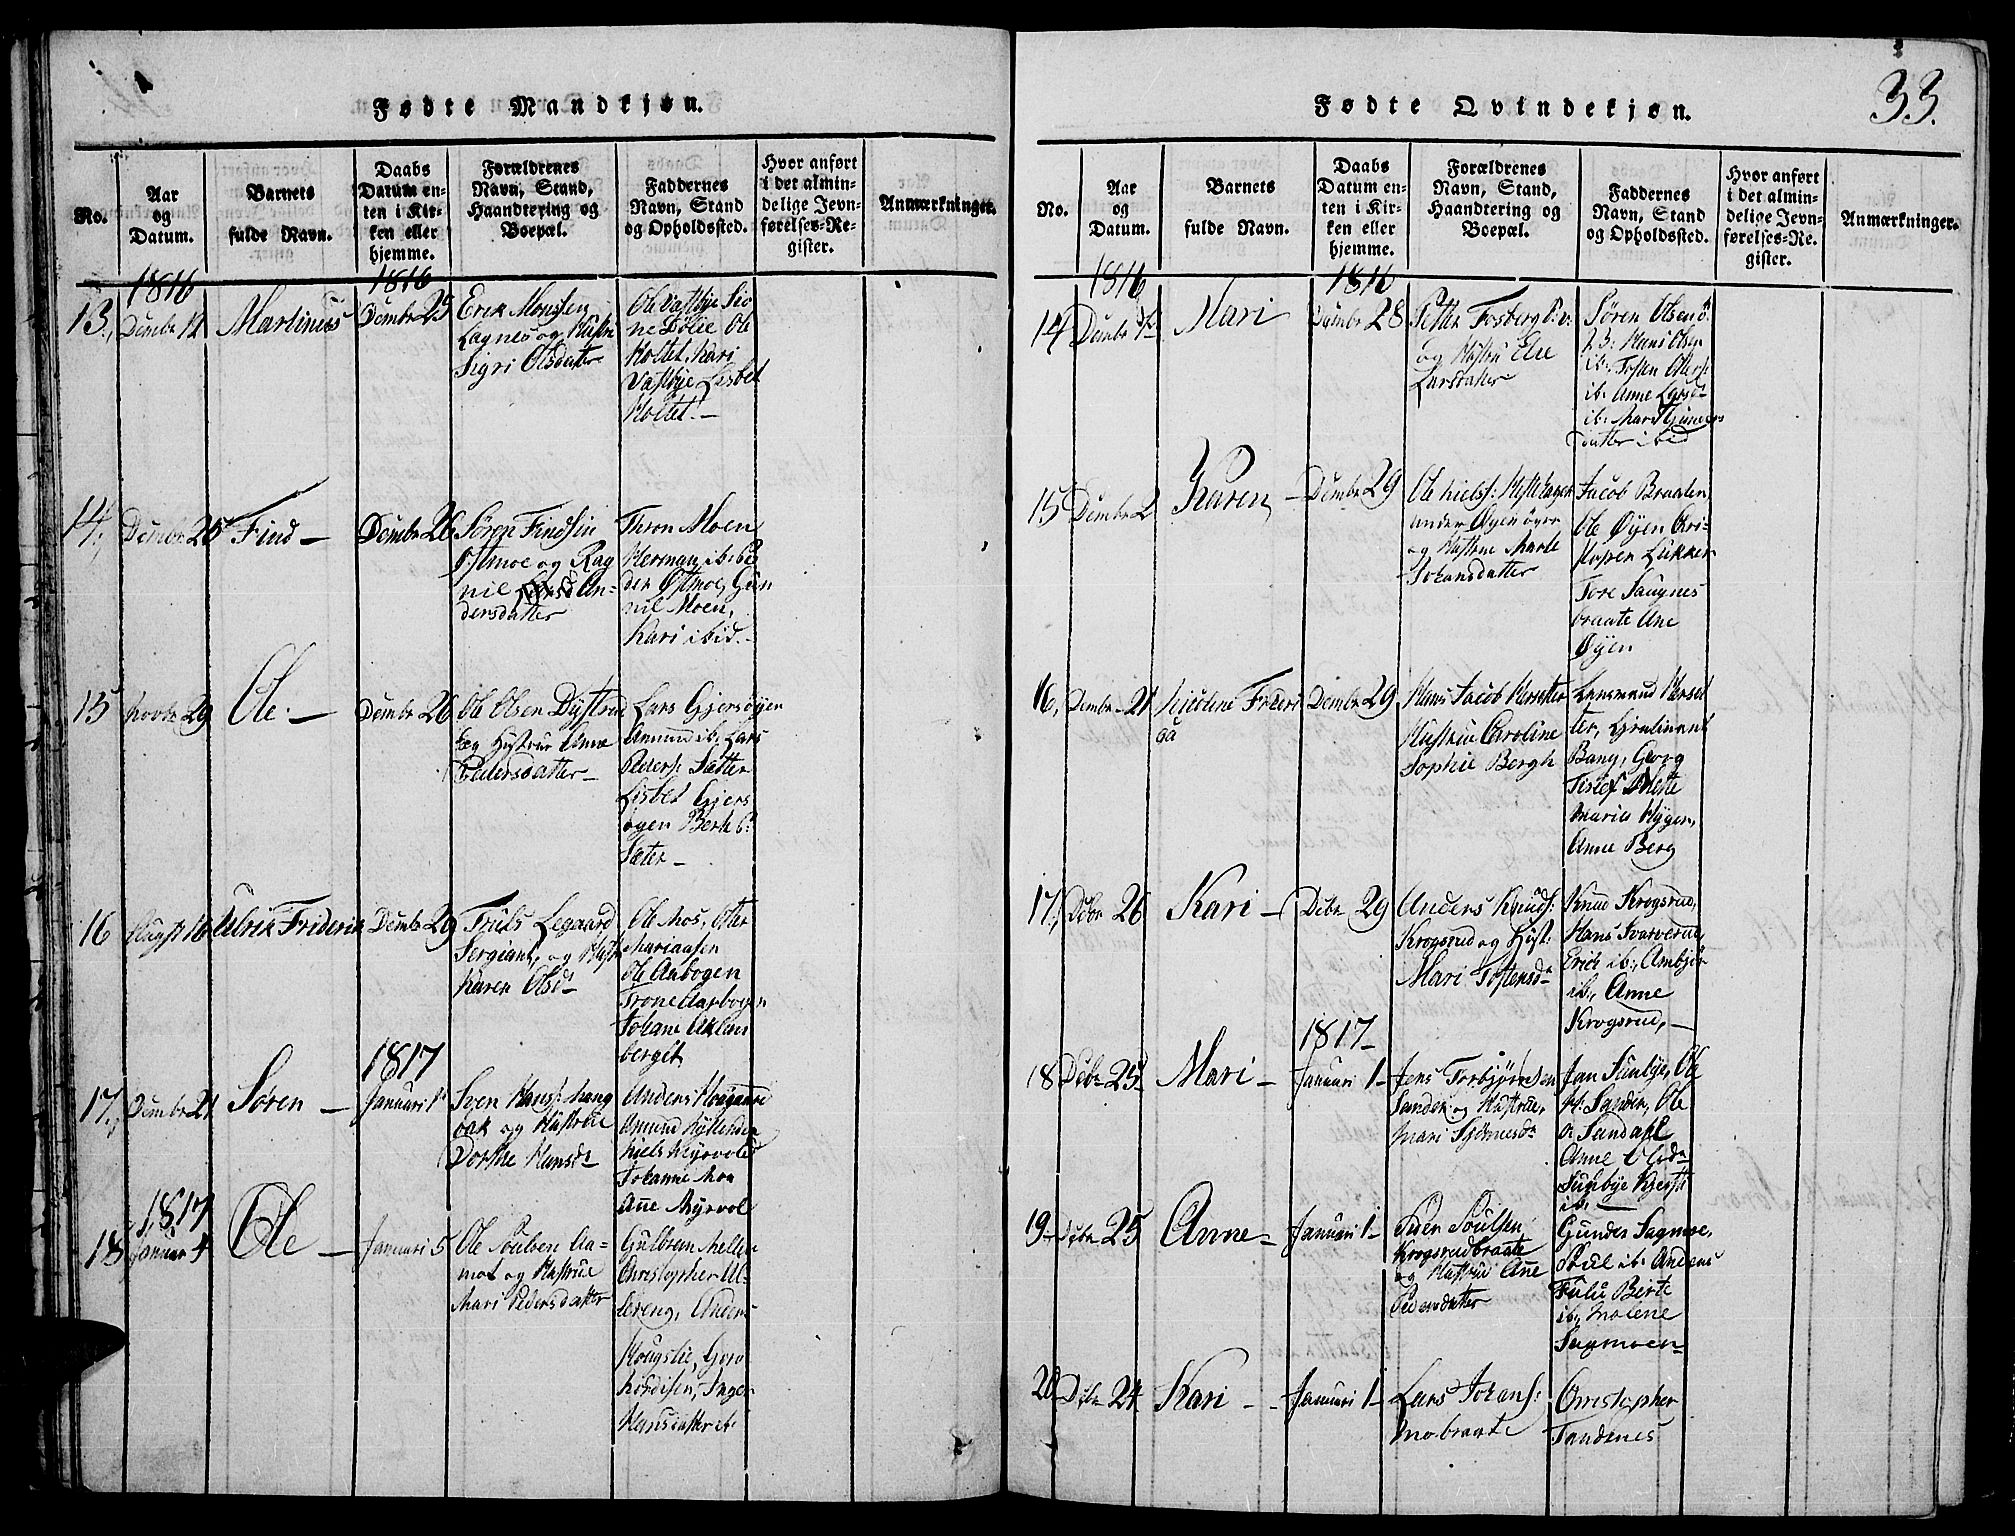 33.
Fødte Mandkjøn.
No.
Aar
og
Datum.
Barnets
fulde Navn.
Daabs
Datum en-
ten i Kir-
ken eller
hjemme.
Forældrenes
Navn, Stand,
Haandtering og
Boepæl.
Faddernes
Navn, Stand
og Opholdssted.
Hvor anført
i det almin-
delige Jevn-
førelses-Re-
gister.
Anmærkninger.
1816
1816
13.,
Dcmbr 12
Martinus
Dcmbr 25
Erik Monsen
Lagnes og Hustru
Sigri Olsdatter
Ole Vastbye Sio
ne Dølie Ole
Holtet, Kari
Vastbye Lisbet
Holtet. –
14.,
Dcmbr 25
Find –
Dcmbr 26
Søren Findsen
Østmoe og Rag
nil An-
dersdatter
Thron Moen
Herman ib: Pe
der Østmoe, Gun
nil Moen,
Kari ibid. –
15
Novbr 29
Ole. –
Dcmbr 26
Ole Olsen Dystrud
og Hustrue Anne
Pedersdatter –
Lars Gjersøyen
Amund ib: Lars
Peders: Sætter
Lisbet Gjers
øyen Berte
Sæter –
16
August 16
Ulrik Friderik
Dcmbr 29
Truls Legaard
Sergiant, og Hustr
Karen Olsd
Ole Mos, Otter
Mariaasen
Ole Aabogen
Trone Aabogen
Johane Aklans
berget
1817
17.,
Dcmbr 21
Søren –
Januari 1
Sven Hans: Kong
bak og Hustrue
Dorthe Hansd
Anders Haagaard
Amund
Niels Myrvold
Johanne Moa
Ane Myrvol
1817
18
Januar 4
Ole –
Januari 5
Ole Poulsen Aa-
mot og Hustrue
Mari Pedersdatter
Gulbran Mellem
Christopher Ul-
lereng, Anders
Kougslie, Goro
Nordisen, Inger
Hansdatter ib:
Fødte Qvindekjøn.
No.
Aar
og
Datum.
Barnets
fulde Navn.
Daabs
Datum en-
ten i Kir-
ken eller
hjemme.
Forældrenes
Navn, Stand,
Haandtering og
Boepæl.
Faddernes
Navn, Stand
og Opholdssted.
Hvor anført
i det almin-
delige Jevn-
førelses-Re-
gister.
Anmærkninger.
1816
1816
14
Dcmbr
Mari
Dcmbr 28
Petter Fosberg
og Hustru Else
Larsdatter
Søren Olsen
Hans Olsen
ib: Tosten Olsen
ib: Anne Larsd
ib: Mari Gunders
datter ibid
15
Dcmbr 2
Karen –
Dcmbr 29
Ole Niels:
under Øyen øvre
og Hustrue Marte
Johansdatter
Jacob Braaten
Ole Øyen Chri-
stopen Lukker
Tore Saugnes
braate Ane
Øyen
16.
Dcmbr 21
Nicoline Frideri
ca
Dcmbr 29
Hans Jacob Hersetter
Hustrue Caroline
Sophie Bergh
Lensmand Herset
ter,
Bang, Georg
Marie Nygen,
Anne Berg
17.,
Dcbr 26
Kari –
Dcbr 29
Anders Knuds:
Krogsrud og Hust:
Mari Tostensd
Knud Krogsrud,
Hans Svarverud,
Erich ib:, Ambjør
ib:, Anne
Krogsrud, –
1817 –
18
Dcbr 25
Mari –
Januari 1 –
Jens Torbjørnsen
Sander og Hustrue,
Mari
Jan Sunbye, Ole
H: Sander, Ole
O: Sandahl
Anne Olsd
Sunbye Kjersti
ib: –
19 –
Dcbr 25
Anne –
Januari 1 –
Peder Poulsen
Krogsrudbraate
og Hustrue Ane
Pedersdatter
Gunder Sagmoe,
Poul ib: Anders
Fulu Berte
ib:, Malene
Sagmoen –
20
Dcbr 24
Kari –
Januari 1 –
Lars Johans:
Mobraate
Christopher
Tandenes